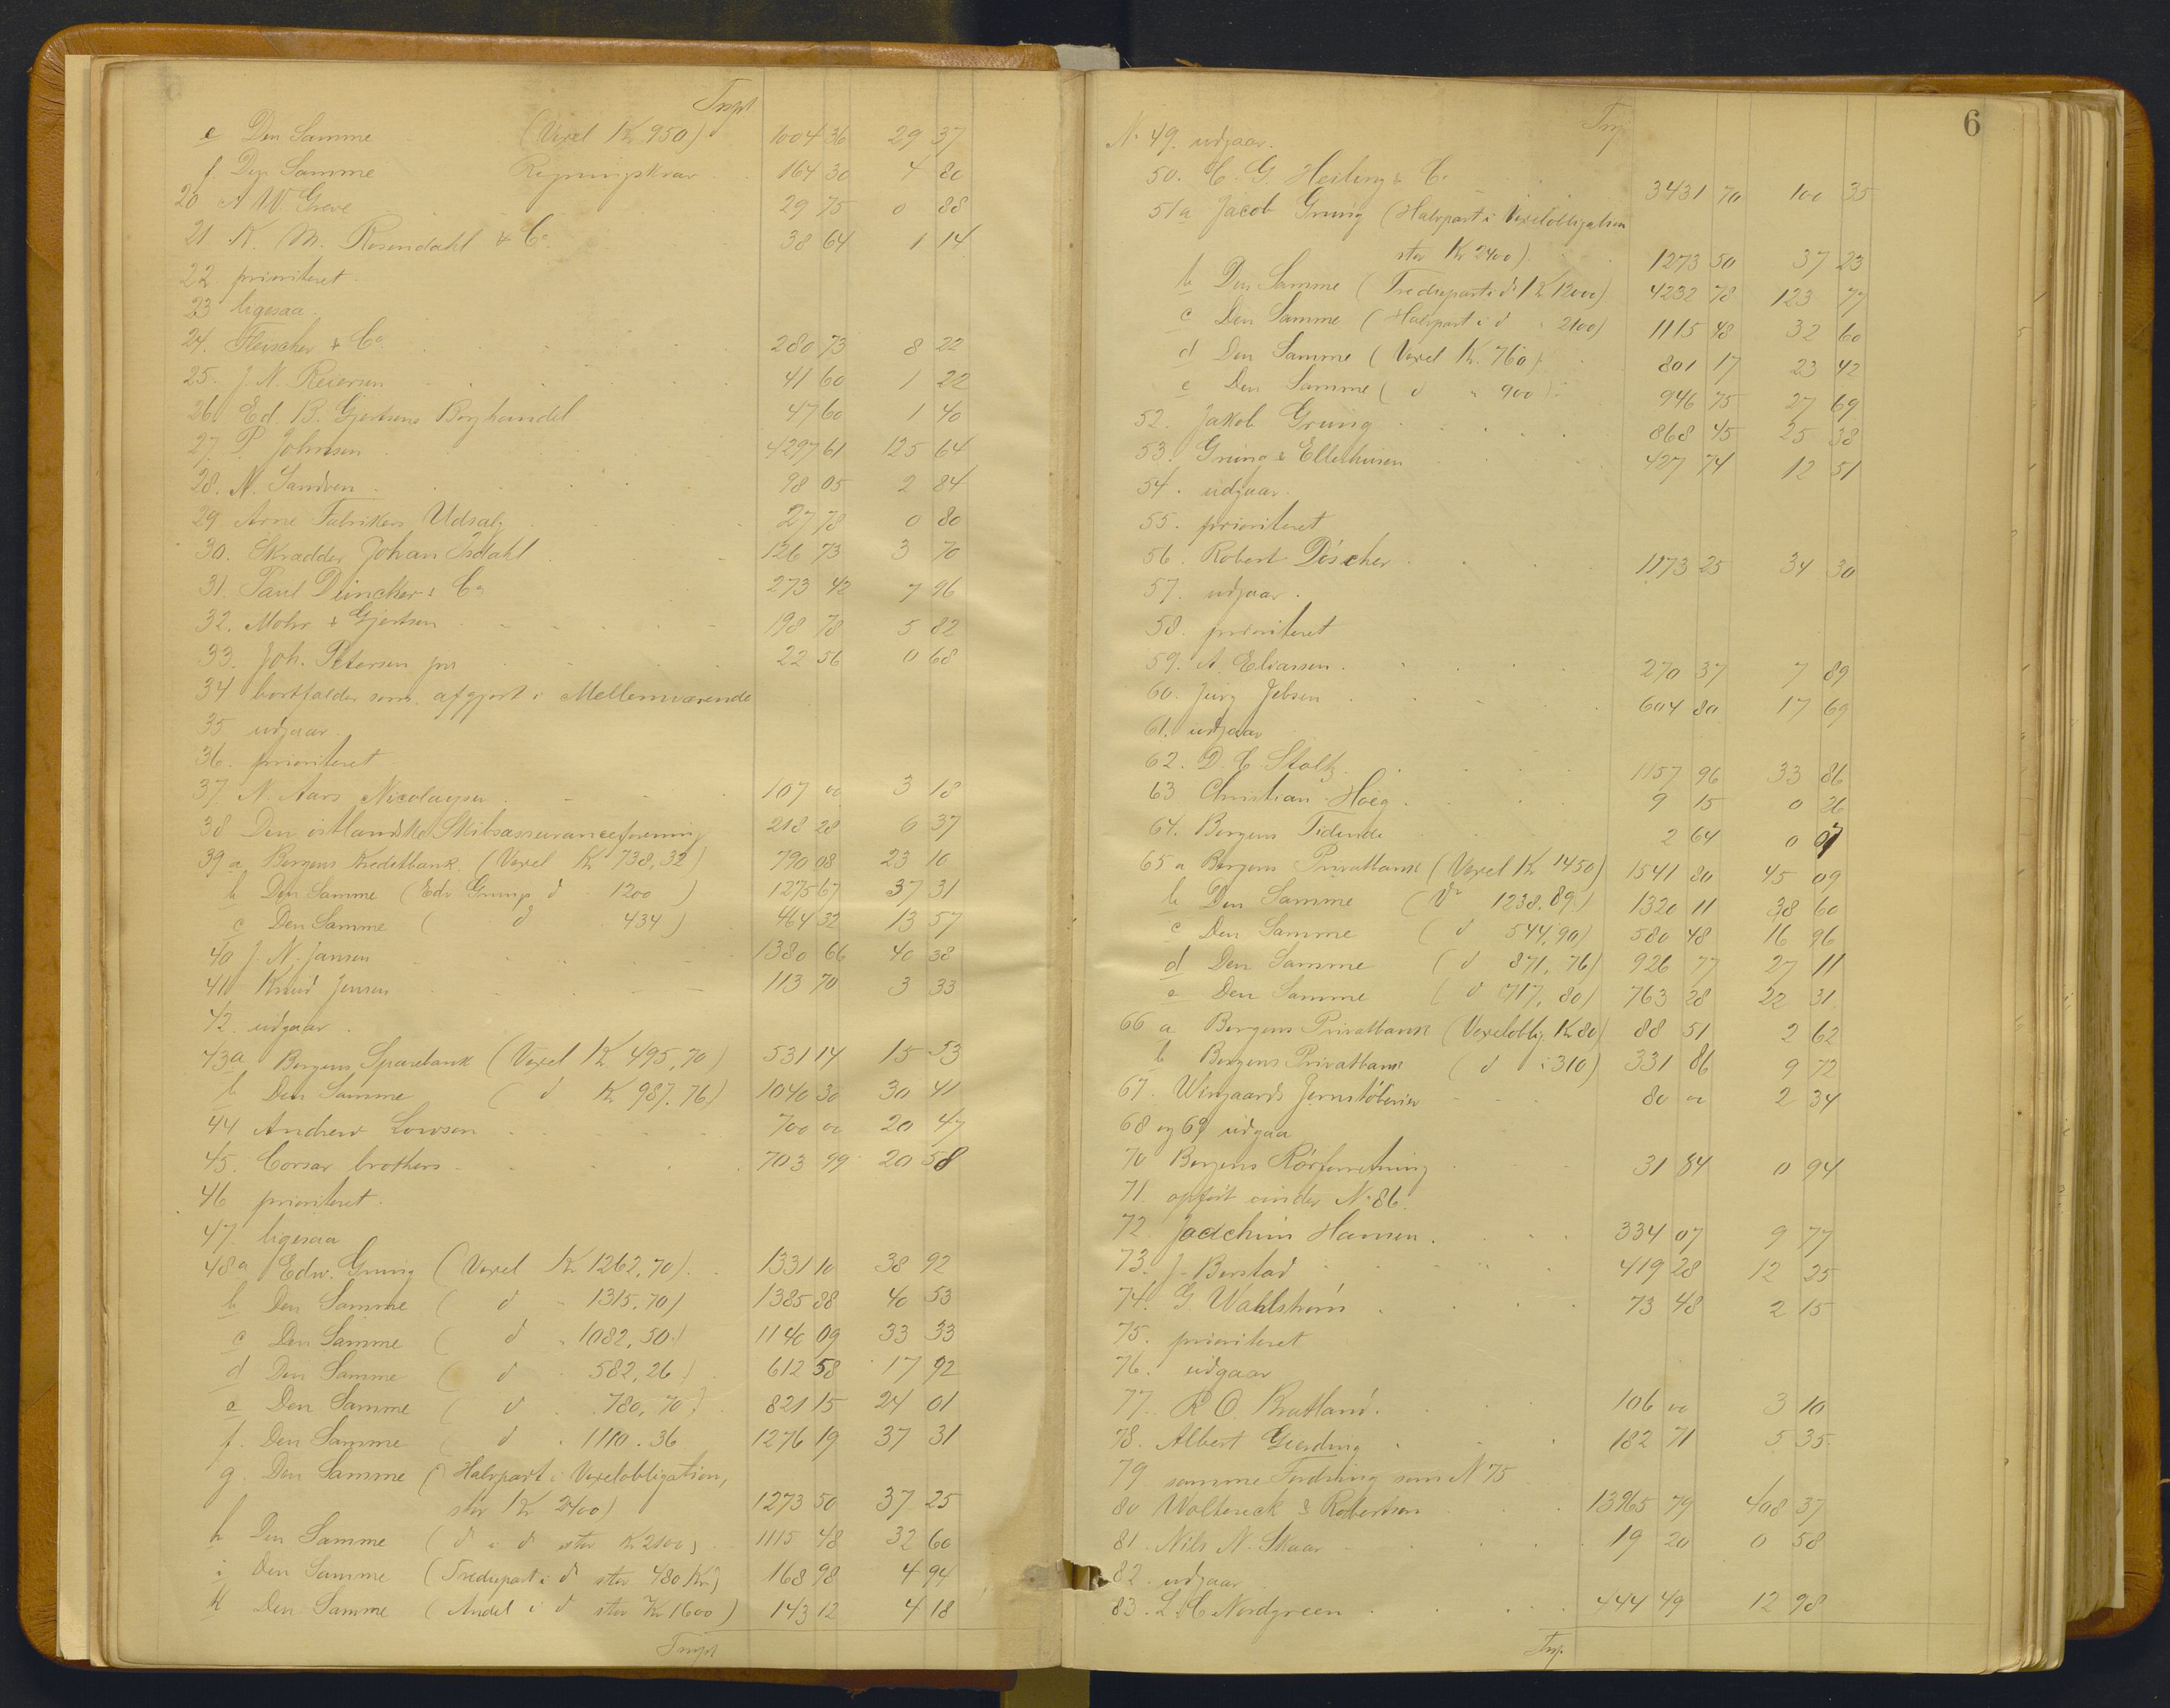 Trspt
e Den Samme (Vexel Kr 950) 1004 36 29 37
f. Den Samme Regningskrav 164 30 4 80
20 A W. Greve 29 75 0 88
21 K. M. Rosendahl & Co. 38 64 1 14
22 prioriteret.
23 ligesaa.
24. Fleischer & Co. 280 73 8 22
25. J. N. Reiersen 41 60 1 22
26 Ed. B. Gjertsens Boghandel 47 60 1 40
27 P. Johnsen 4297 61 125 64
28. N. Sandven 98 05 2 84
29 Arne Fabrikers Udsalg 27 78 0 80
30. Skrædder Johan Isdahl 126 73 3 70
31. Paul Düncker & Co 273 42 7 96
32. Mohr & Gjertsen 198 78 5 82
33. Joh. Petersen jnr 22 56 0 68
34 bortfalder som afgjort i Mellemværende
35 udgaar.
36. prioriteret
37 N. Aars Nicolaysen 107 00 3 18
38 Den østlandske Skibsassuranceforening 218 28 6 37
39 a Bergens Kreditbank (Vexel Kr 738,32) 790 08 23 10
b Den Samme (Edv Grungs d 1200) 1275 67 37 31
c Den Samme ( d 434) 464 32 13 57
40 J. N. Jansen 1380 66 40 38
41 Knud Jensen 113 70 3 33
42. udgaar.
43a Bergens Sparebank (Vexel Kr. 495,70) 531 14 15 53
b Den Samme ( d Kr 987.76) 1040 30 30 41
44 Andrew Lowson 700 00 20 47
45. Corsar brothers 703 99 20 58
46 prioriteret.
47. ligesaa
48a Edw. Grung (Vexel Kr 1262,70) 1331 10 38 92
b Den Samme ( d 1315,70) 1385 88 40 53
c Den Samme ( d 1082,50) 1140 09 33 33
d Den Samme ( d 582,26) 612 58 17 92
e Den Samme ( d 780,70) 821 15 24 01
f. Den Samme ( d 1110.36 1276 19 37 31
g. Den Samme (Halvpart i Vexelobligation,
stor Kr 2400) 1273 50 37 25
h Den Samme (d i d stor Kr 2100) 1115 48 32 60
i Den Samme (Trediepart i d stor 480 Kr) 168 98 4 94
k Den Samme (Andel i d stor Kr 1600) 143 12 4 18
Trspt
6
Trsp
No 49. udgaar.
50. C. G. Heiling & Co 3431 70 100 35
51a Jacob Grung (Halvpart i Vexelobligation
stor Kr 2400). 1273 50 37 23
b Den Samme (Trediepart i do Kr 12000) 4232 78 123 77
c Den Samme (Halvpart i d 2100) 1115 48 32 60
d Den Samme (Vexel Kr. 760) 801 17 23 42
e Den Samme ( d " 900) 946 75 27 69
52. Jakob Grung 868 45 25 38
53. Grung & Ellerhusen 427 74 12 51
54. udgaar.
55. prioriteret
56. Robert Döscher 1173 25 34 30
57. udgaar.
58. prioriteret
59. A. Eliassen 270 37 7 89
60. Jürg Jebsen 604 80 17 69
61. udgaar
62. D. C. Stoltz 1157 96 33 86
63 Christian Høeg 9 15 0 26
64. Bergens Tidende 2 64 0 07
65 a Bergens Privatbank (Vexel Kr 1450) 1541 80 45 09
b Den Samme (do 1238.89) 1320 11 38 60
c Den Samme (d 544,90) 580 48 16 96
d Den Samme (d 871,76) 926 77 27 11
e Den Samme (d 717,80) 763 28 22 31
66 a Bergens Privatbank (Vexeloblig. Kr 80) 88 51 2 62
b Bergens Privatbank (d 310) 331 86 9 72
67. Wingaards Jernstøberier 80 00 2 34
68 og 69 udgaa
70 Bergens Rørforretning 31 84 0 94
71. opført under No 86.
72. Joachim Hansen 334 07 9 77
73. J. Berstad 419 28 12 25
74. G. Wahlstrøm 73 48 2 15
75. prioriteret
76. udgaar
77. R. O. Bratland. 106 00 3 10
78. Albert Gierding 182 71 5 35
79 samme Fordring som N 75
80 Woltereck & Robertson 13965 79 408 37
81. Nils N. Skaar 19 20 0 58
82. udgaar
83. L. & C Nordgreen 444 49 12 98
Trsp.